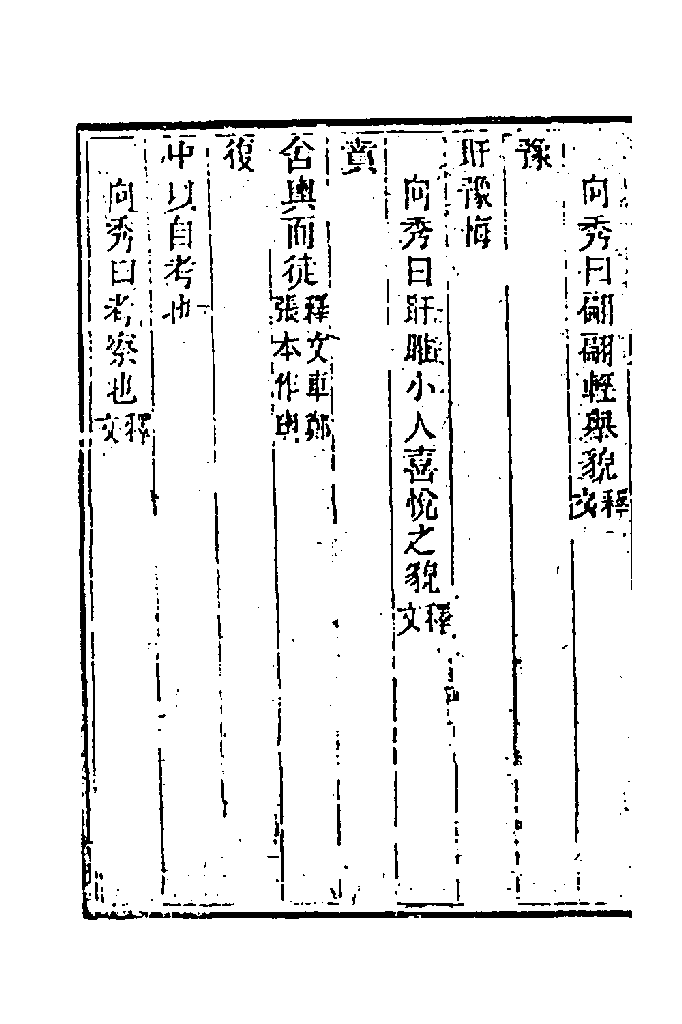 向秀曰翩翩輕舉貌釋文
豫
盱豫悔
向秀曰盱睢小人喜悅之貌釋文
賁
舍輿而徒釋文車鄭張本作輿
復
中以自考也
向秀曰考察也釋文